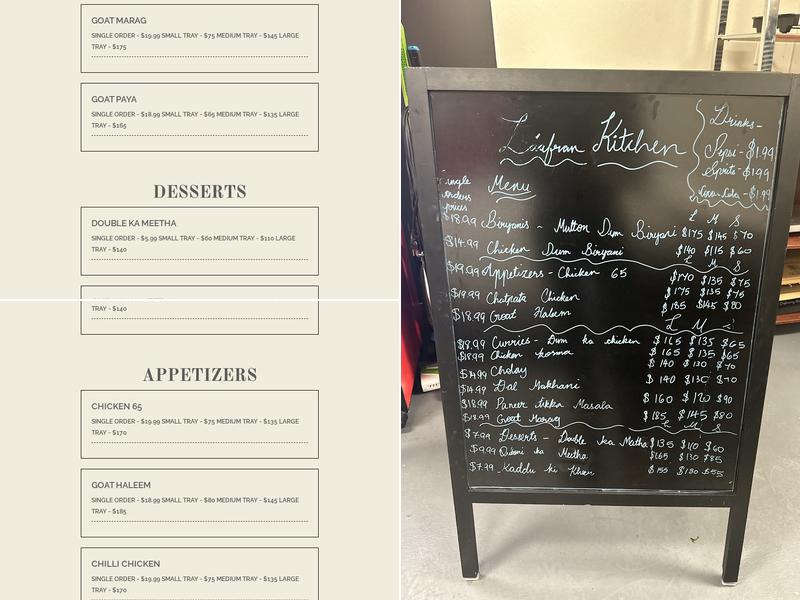 GOAT MARAG
SINGLE ORDER - $19.99 SMALL TRAY - $75 MEDIUM TRAY - $145 LARGE
TRAY - $175
GOAT PAYA
SINGLE ORDER - $18.99 SMALL TRAY - $65 MEDIUM TRAY - $135 LARGE
TRAY - $165
DESSERTS
DOUBLE KA MEETHA
SINGLE ORDER - $5.99 SMALL TRAY - $60 MEDIUM TRAY - $110 LARGE
TRAY - $140
TRAY - $140
APPETIZERS
CHICKEN 65
SINGLE ORDER - $19.99 SMALL TRAY - $75 MEDIUM TRAY - $135 LARGE
TRAY - $170
GOAT HALEEM
SINGLE ORDER - $18.99 SMALL TRAY - $80 MEDIUM TRAY - $145 LARGE
TRAY - $185
CHILLI CHICKEN
SINGLE ORDER - $19.99 SMALL TRAY - $75 MEDIUM TRAY - $135 LARGE
TRAY - $170
Kitchen
Drinks-
Pepsi - $1.99
Sprite - $1.99
Coca-Cola - $1.99
Menu
single
orders
prices
L M S
$18.99 Biryanis - Mutton Dum Biryani $175 $145 $70
$14.99 Chicken Dum Biryani $140 $115 $60
L M S
$19.99 Appetizers - Chicken 65 $170 $135 $75
$19.99 Chatpata Chicken $175 $135 $75
$18.99 Goat Haleem $185 $145 $80
L M
$18.99 Curries - Dum ka chicken $165 $135 $65
$18.99 Chicken korma $165 $135 $65
$14.99 Cholay $140 $130 $70
$14.99 Dal Makhani $140 $130 $70
$18.99 Paneer tikka Masala $160 $120 $90
$18.99 Goat Marag $185 $145 $80
L M S
$7.99 Desserts - Double ka Metha $135 $110 $60
$9.99 Qubani ka Meetha $165 $130 $85
$7.99 Kaddu ki Kheer $155 $130 $55